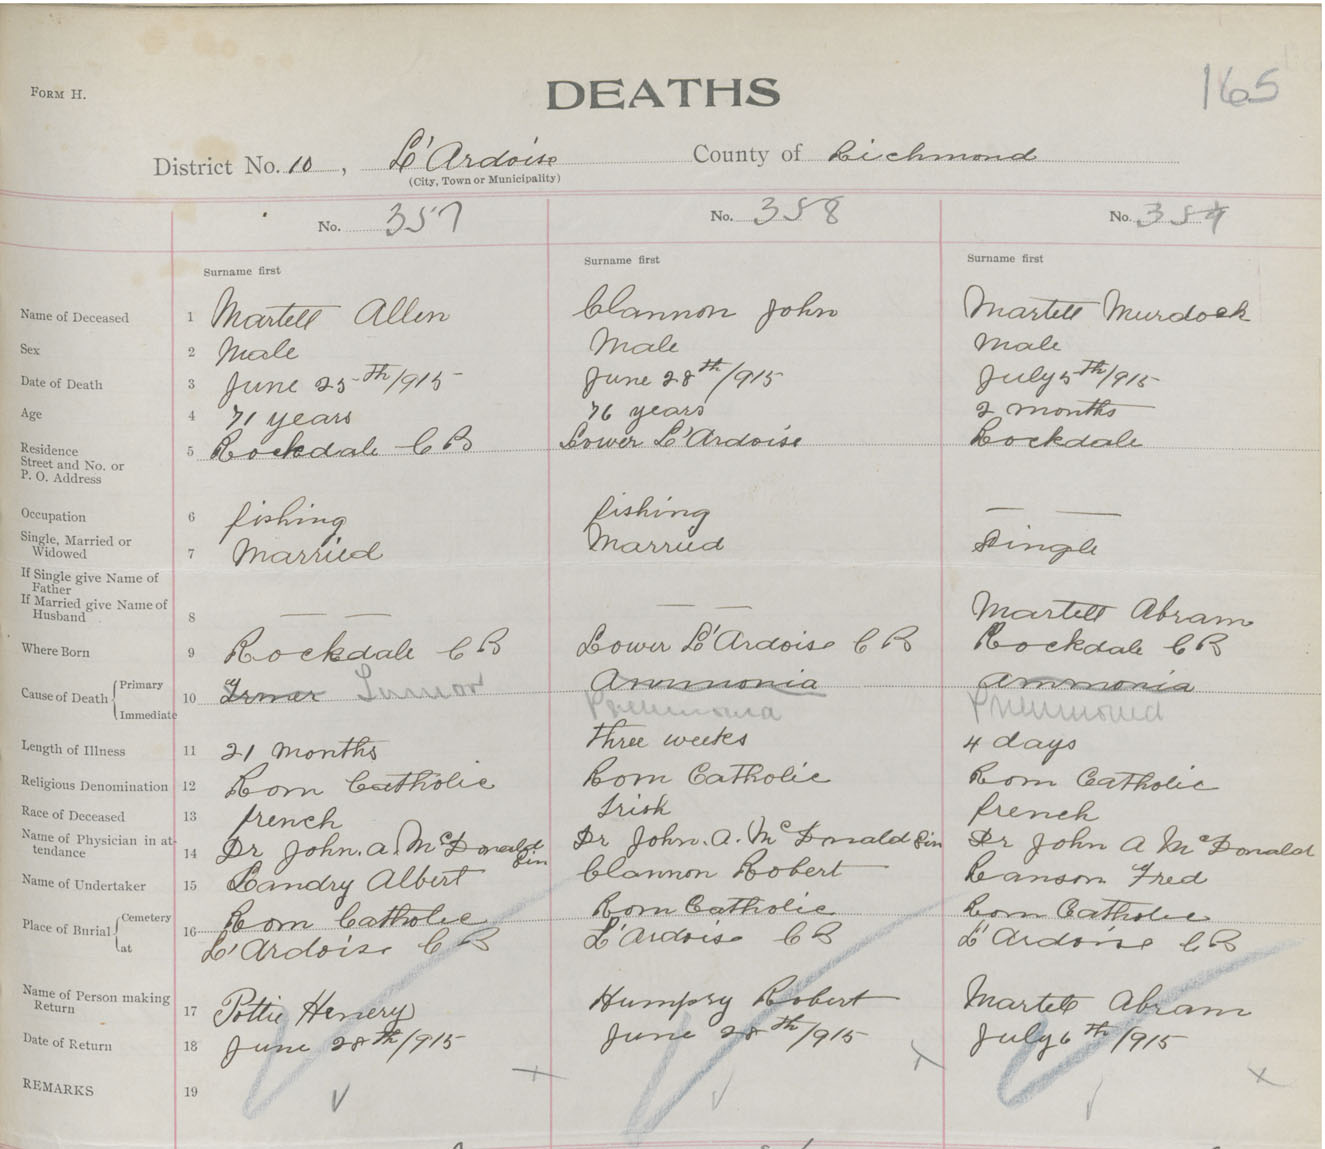 FORM H.
DEATHS
165
District No. 10, L'Ardoise County of Richmond
(City, Town or Municipality)
No. 357 No. 358 No. 359
Surname first Surname first Surname first
Name of Deceased 1 Martell Allen Clannon John Martell Murdock
Sex 2 Male Male Male
Date of Death 3 June 25th/915 June 28th/915 July 5th/915
Age 4 71 years 76 years 2 months
Residence Street and No. or P. O. Address 5 Rockdale C B Lower L'Ardoise Rockdale
Occupation 6 fishing fishing — —
Single, Married or Widowed 7 Married Married Single
If Single give Name of Father
If Married give Name of Husband 8 — — — — Martell Abram
Where Born 9 Rockdale C B Lower L'Ardoise C B Rockdale C B
Cause of Death { Primary 10 Tumor Ammonia Ammonia
Immediate Pneumonia Pneumonia
Length of Illness 11 21 months three weeks 4 days
Religious Denomination 12 Rom Catholic Rom Catholic Rom Catholic
Race of Deceased 13 french Irish french
Name of Physician in attendance 14 Dr John. A. McDonald Sin Dr John. A. McDonald Sin Dr John A McDonald
Name of Undertaker 15 Landry Albert Clannon Robert Ranson Fred
Place of Burial { Cemetery 16 Rom Catholic Rom Catholic Rom Catholic
at L'Ardoise C B L'Ardoise C B L'Ardoise C B
Name of Person making Return 17 Pottie Henery Humpsy Robert Martell Abram
Date of Return 18 June 28th/915 June 28th/915 July 6th/915
REMARKS 19